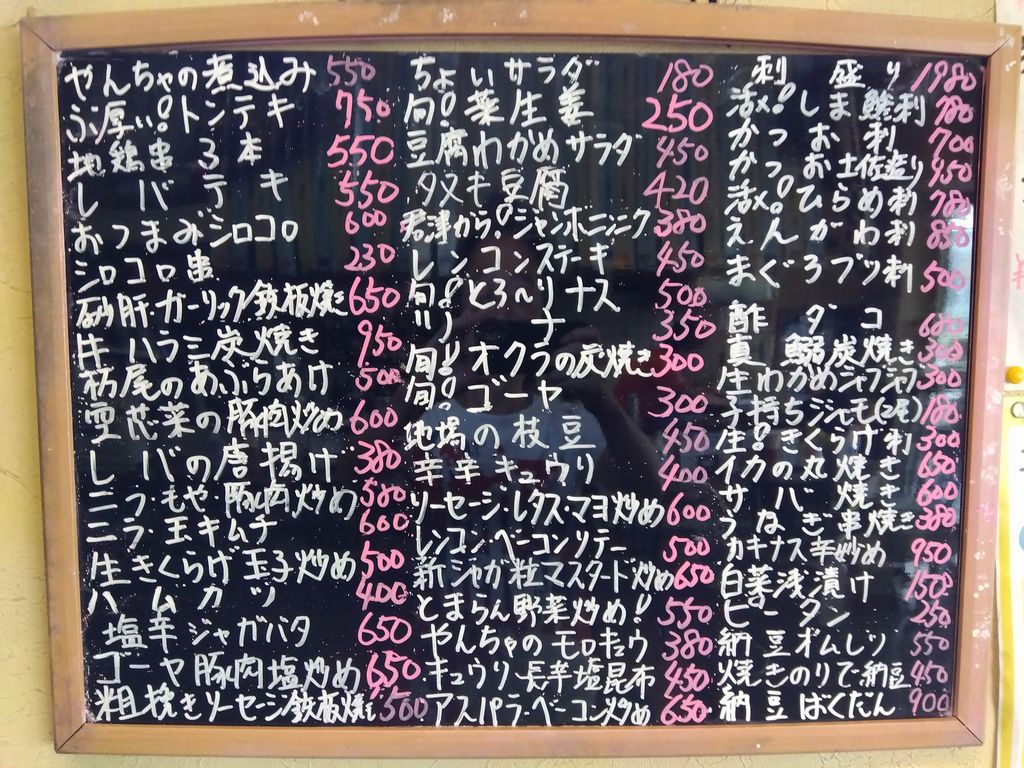 やんちゃの煮込み 550
ぶ厚い!トンテキ 750
地鶏串 3本 550
レバテキ 550
おつまみシロコロ 600
シロコロ串 230
砂肝・ガーリック鉄板焼き 650
牛ハラミ炭焼き 950
栃尾のあぶらあげ 500
雪花菜の豚肉炒め 600
レバの唐揚げ 380
ニラもや・豚肉炒め 580
ニラ・玉キムチ 600
生きくらげ玉子炒め 500
ハムカツ 400
塩辛ジャガバタ 650
ゴーヤ豚肉塩炒め 650
粗挽きソーセージ鉄板焼き 500
ちょいサラダ 180
旬!葉生姜 250
豆腐わかめサラダ 450
タヌキ豆腐 420
君津から!ジャンボニンニク 380
レンコンステーキ 450
旬!とろ〜りナス 500
〃 ナ 350
旬!オクラの炭焼き 300
旬!ゴーヤ 300
地場の枝豆 450
辛辛キュウリ 400
ソーセージ・レタス・マヨ炒め 600
レンコン・ベーコンソテー 500
新ジャガ粒マスタード炒め 650
とまらん野菜炒め! 550
やんちゃのモロキュウ 380
キュウリ・長辛塩昆布 450
アスパラ・ベーコン炒め 650
刺盛り 1980
活〆!しま鯵刺 780
かつお刺 700
かつお土佐造り 950
活〆!ひらめ刺 780
えんがわ刺 850
まぐろブツ刺 500
酢ダコ 680
真鰯炭焼き 300
生わかめシャブシャブ 300
子持ちシシャモ(2尾) 180
生!きくらげ刺 300
イカの丸焼き 650
サバ焼き 600
うなぎ串焼き 380
カキナス辛炒め 950
白菜浅漬け 150
ピータン 250
納豆オムレツ 550
焼きのりで納豆 450
納豆ばくだん 900